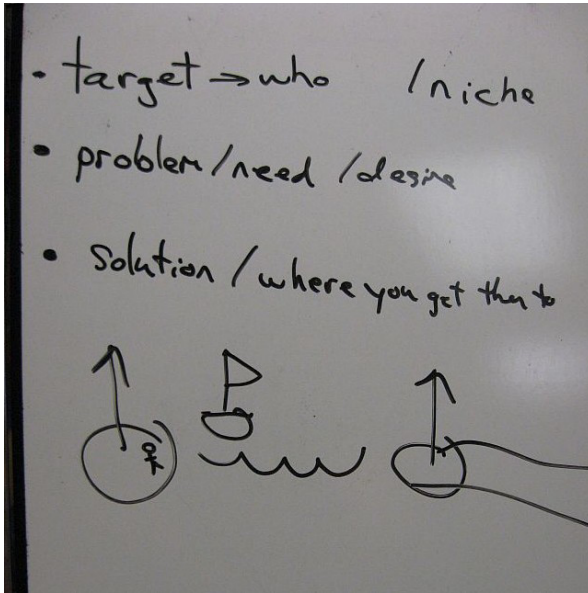 • target → who /niche
• problem/need/desire
• solution / where you get them to